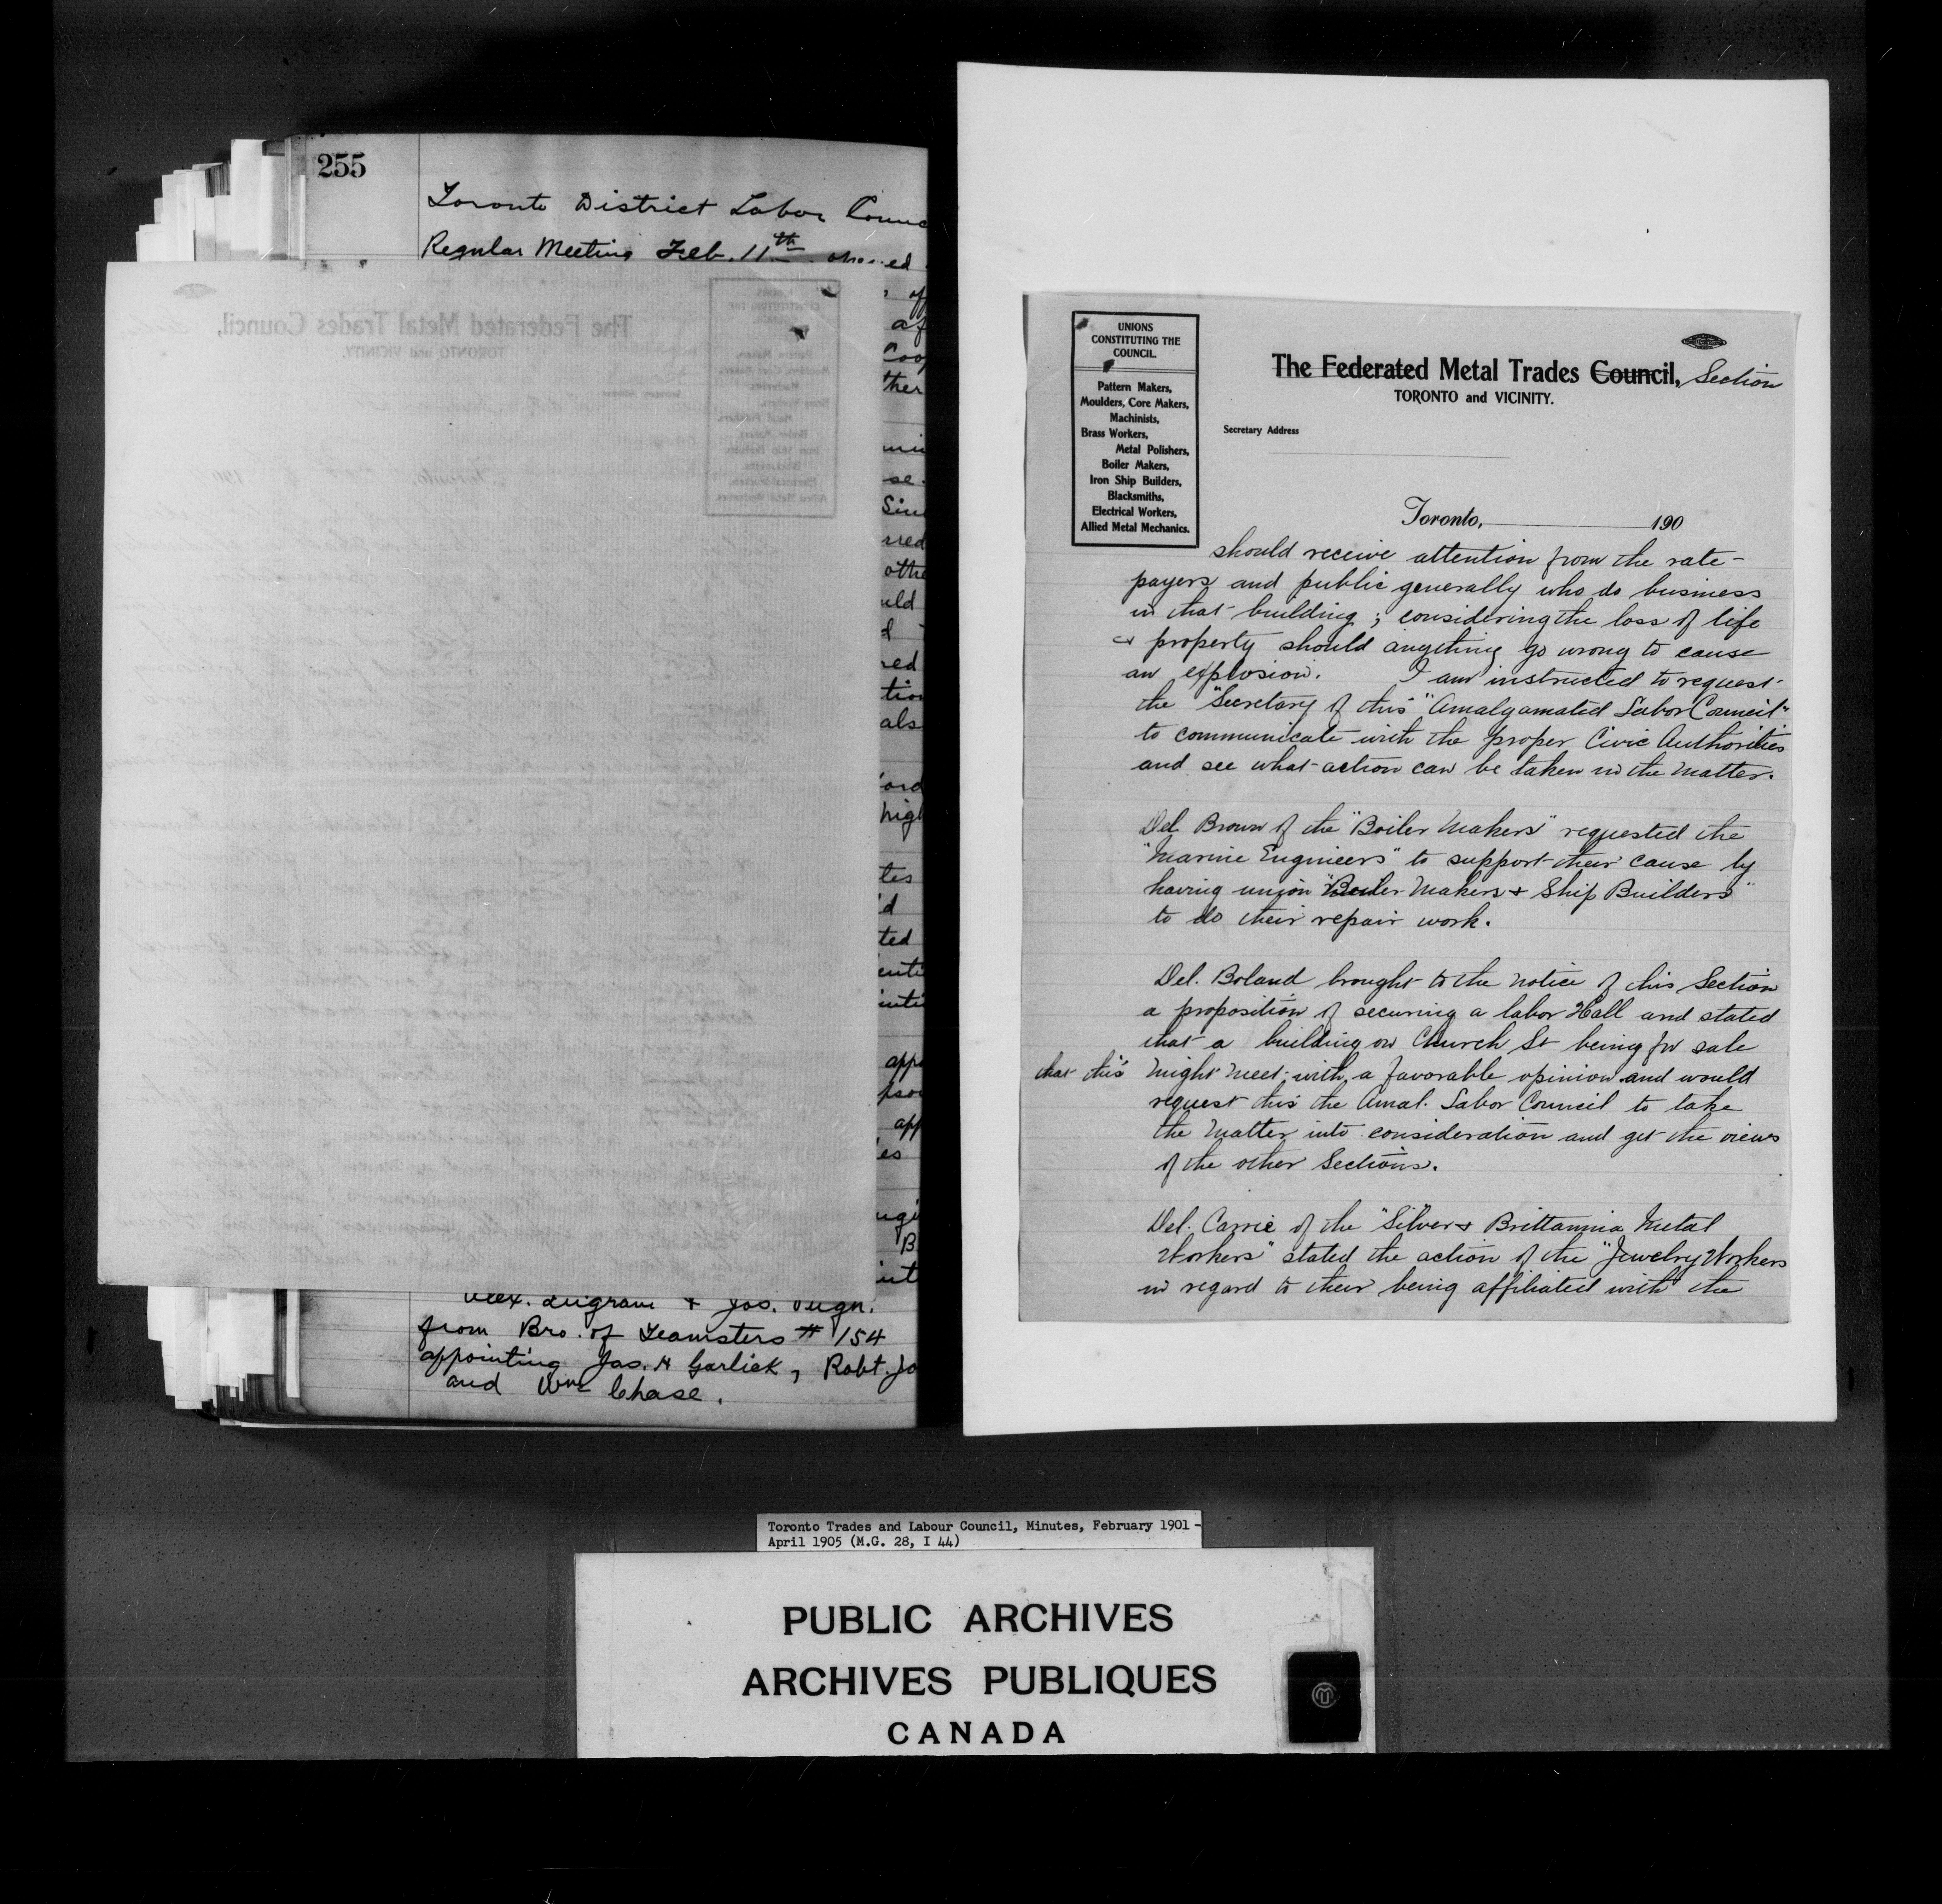 255
Toronto District Labor
Regular Meeting Feb. 11th
from Bro. of Teamsters # 154
appointing Jas. H Garlick, Robt. Jo
and Wm Chase.
UNIONS
CONSTITUTING THE
COUNCIL.
Pattern Makers,
Moulders, Core Makers,
Machinists,
Brass Workers,
Metal Polishers,
Boiler Makers,
Iron Ship Builders,
Blacksmiths,
Electrical Workers,
Allied Metal Mechanics.
The Federated Metal Trades Council, Section
TORONTO and VICINITY.
Secretary Address
Toronto, 190
should receive attention from the rate-
payers and public generally who do business
in that building ; considering the loss of life
& property should anything go wrong to cause
an explosion. I am instructed to request
the "Secretary of this "Amalgamated Labor Council"
to communicate with the proper Civic Authorities
and see what action can be taken in the matter.
Del. Brown of the "Boiler Makers" requested the
"Marine Engineers" to support their cause by
having union "Boiler Makers & Ship Builders"
to do their repair work.
Del. Boland brought to the notice of this Section
a proposition of securing a labor Hall and stated
that a building on Church St being for sale
that this might meet with a favorable opinion and would
request this the Amal. Labor Council to take
the matter into consideration and get the views
of the other Sections.
Del. Carrie of the "Silver & Brittannia Metal
Workers" stated the action of the "Jewelry Workers
in regard to their being affiliated with the
Toronto Trades and Labour Council, Minutes, February 1901 -
April 1905 (M.G. 28, I 44)
PUBLIC ARCHIVES
ARCHIVES PUBLIQUES
CANADA